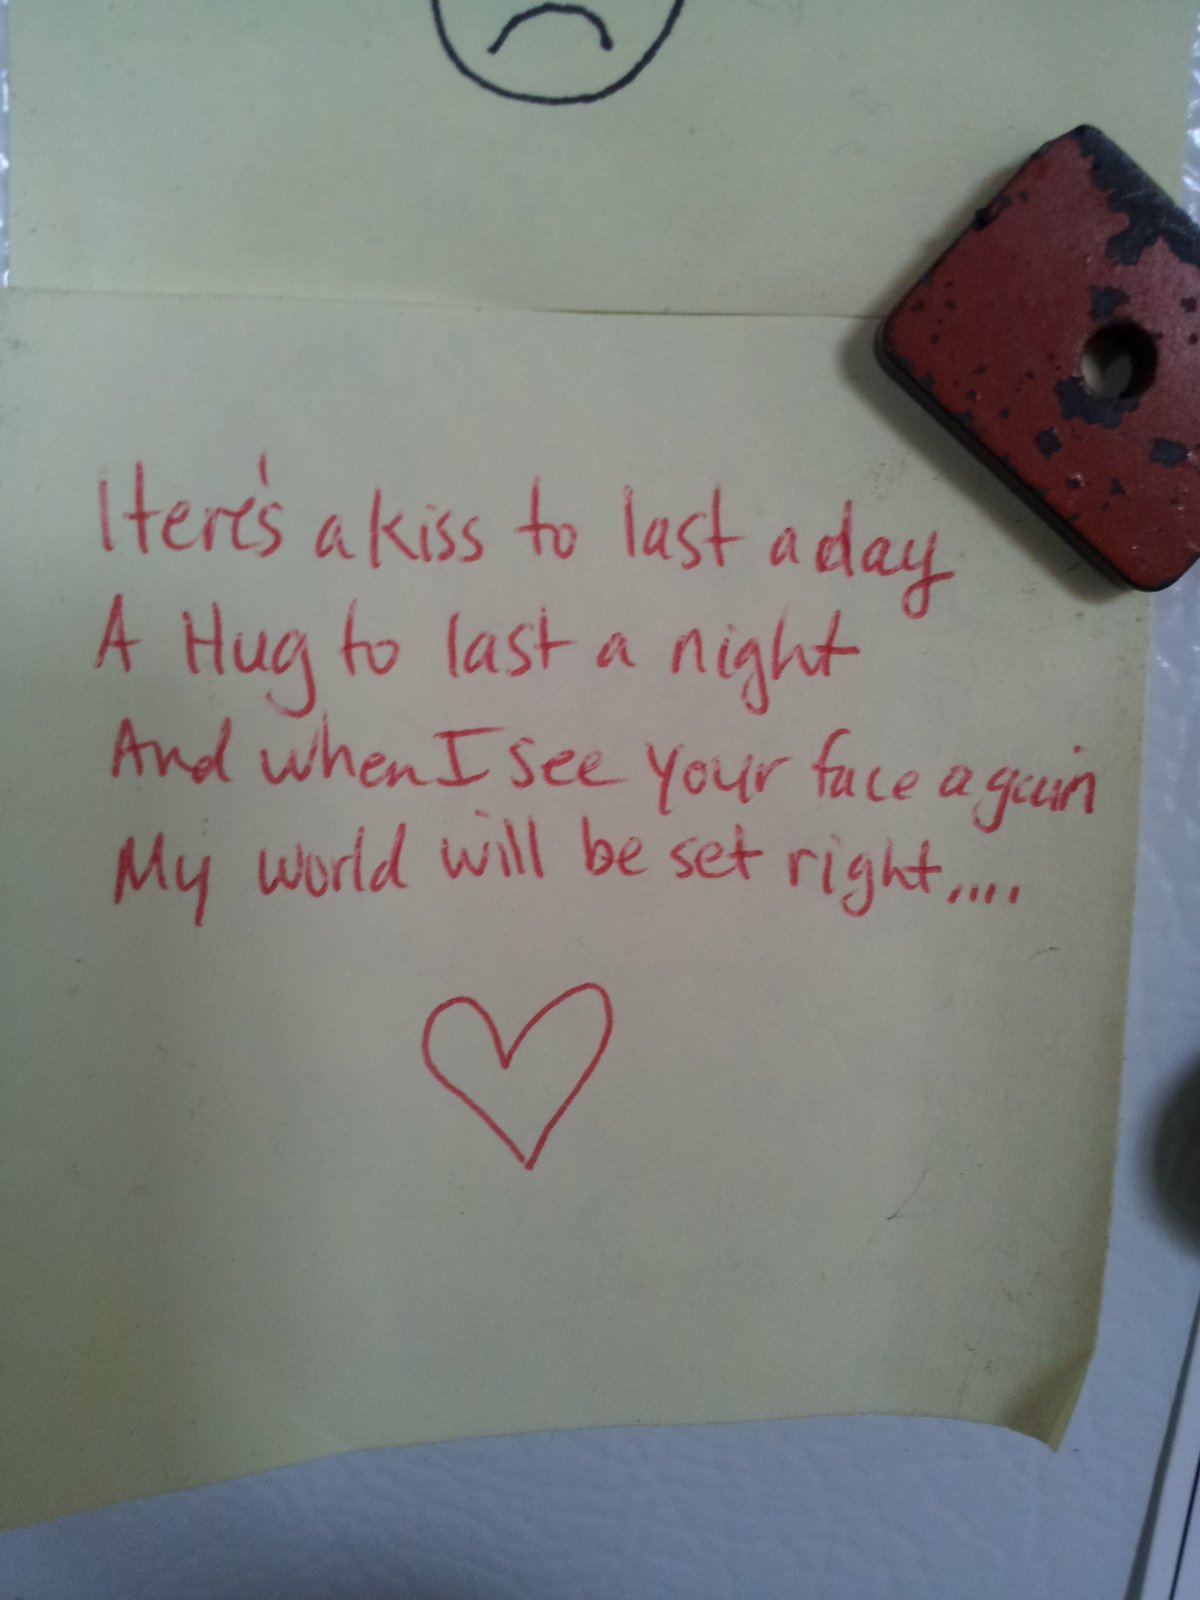 Here's a kiss to last a day
A Hug to last a night
And when I see your face again
My world will be set right....